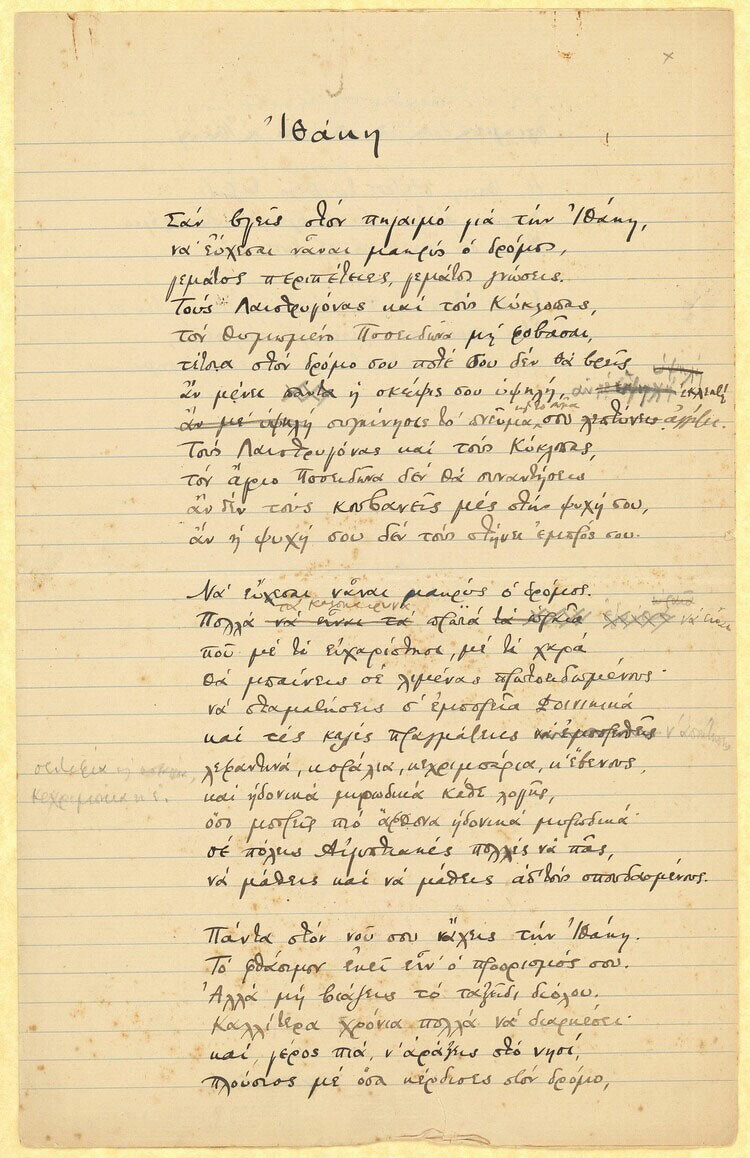 Ἰθάκη
Σάν βγεῖς στόν πηγαιμό γιά τήν Ἰθάκη,
νά εὔχεσαι νἆναι μακρύς ὁ δρόμος,
γεμάτος περιπέτειες, γεμάτος γνώσεις.
Τούς Λαιστρυγόνας καί τούς Κύκλωπας,
τόν θυμωμένο Ποσειδῶνα μή φοβᾶσαι,
τέτοια στόν δρόμο σου ποτέ σου δέν θά βρεῖς
ἄν μένει πάντα ἡ σκέψις σου ὑψηλή, ἄν ἐκλεκτή
συγκίνησις τό πνεῦμα καί τό σῶμα σου ἀγγίζει.
Τούς Λαιστρυγόνας καί τούς Κύκλωπας,
τόν ἄγριο Ποσειδῶνα δέν θά συναντήσεις
ἄν δέν τούς κουβανεῖς μές στήν ψυχή σου,
ἄν ἡ ψυχή σου δέν τούς στήνει ἐμπρός σου.
Νά εὔχεσαι νἆναι μακρύς ὁ δρόμος.
Πολλά τά καλοκαιρινά πρωϊά νά εἶναι
πού μέ τί εὐχαρίστησι, μέ τί χαρά
θά μπαίνεις σέ λιμένας πρωτοειδωμένους·
νά σταματήσεις σ' ἐμπορεῖα Φοινικικά
καί τές καλές πραγμάτειες ν' ἀποκτήσεις
σεντέφια
λεχαντινά, κοράλλια, κεχριμπάρια, κ' ἔβενους,
καί ἡδονικά μυρωδικά κάθε λογῆς,
ὅσο μπορεῖς πιό ἄφθονα ἡδονικά μυρωδικά·
σέ πόλεις Αἰγυπτιακές πολλές νά πᾶς,
νά μάθεις καί νά μάθεις ἀπ' τούς σπουδασμένους.
Πάντα στόν νοῦ σου νἄχεις τήν Ἰθάκη.
Τό φθάσιμον ἐκεῖ εἶν' ὁ προορισμός σου.
Ἀλλά μή βιάζεις τό ταξεῖδι διόλου.
Καλλίτερα χρόνια πολλά νά διαρκέσει·
καί, γέρος πιά, ν' ἀράξεις στό νησί,
πλούσιος μέ ὅσα κέρδισες στόν δρόμο,